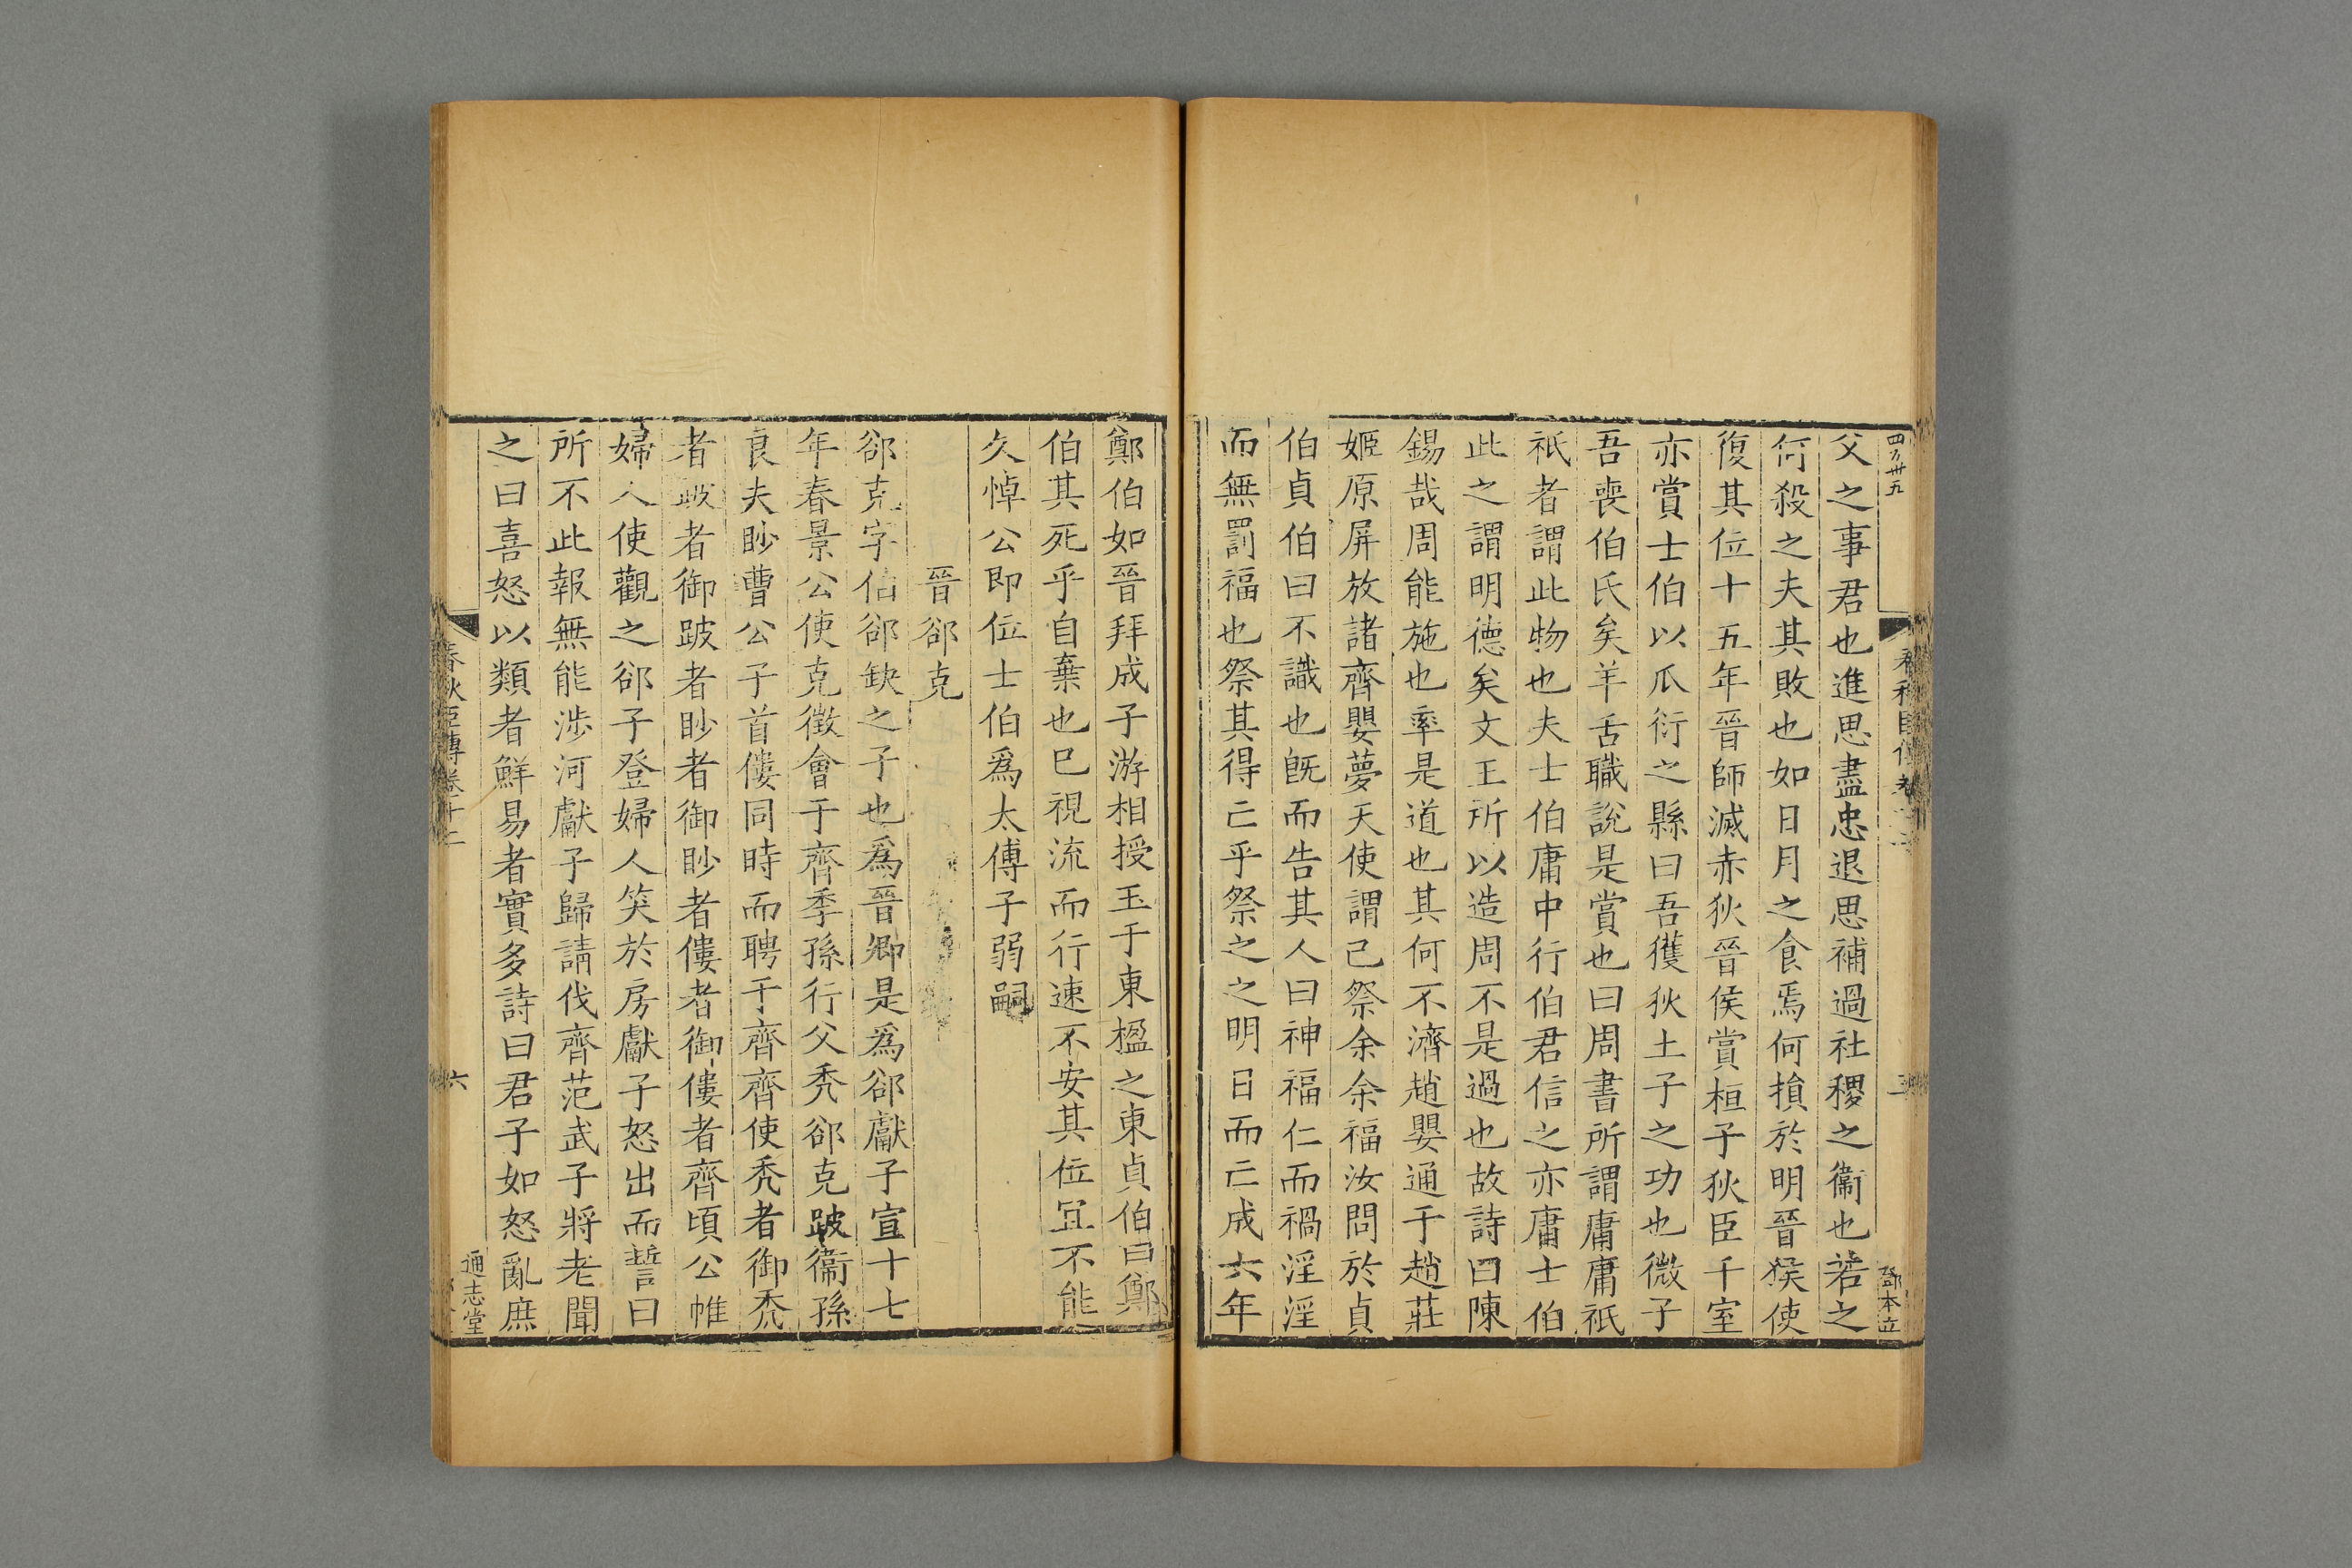 四百卅五
鄧本立
父之事君也進思盡忠退思補過社稷之衞也若之
何殺之夫其敗也如日月之食焉何損於明晉侯使
復其位十五年晉師滅赤狄晉侯賞桓子狄臣千室
亦賞士伯以瓜衍之縣曰吾獲狄土子之功也微子
吾喪伯氏矣羊舌職說是賞也曰周書所謂庸庸祇
祇者謂此物也夫士伯庸中行伯君信之亦庸士伯
此之謂明德矣文王所以造周不是過也故詩曰陳
錫哉周能施也率是道也其何不濟趙嬰通于趙莊
姬原屏放諸齊嬰夢天使謂己祭余余福汝問於貞
伯貞伯曰不識也旣而告其人曰神福仁而禍淫淫
而無罰福也祭其得亡乎祭之之明日而亡成六年
鄭伯如晉拜成子游相授玉于東楹之東貞伯曰鄭
伯其死乎自棄也巳視流而行速不安其位宜不能
久悼公即位士伯爲太傅子弱嗣
晉郤克
郤克字伯郤缺之子也爲晉卿是爲郤獻子宣十七
年春景公使克徵會于齊季孫行父禿郤克跛衞孫
良夫眇曹公子首僂同時而聘于齊齊使禿者御禿
者跛者御跛者眇者御眇者僂者御僂者齊頃公帷
婦人使觀之郤子登婦人笑於房獻子怒出而誓曰
所不此報無能涉河獻子歸請伐齊范武子將老聞
之曰喜怒以類者鮮易者實多詩曰君子如怒亂庶
春秋臣傳卷十二
六
通志堂